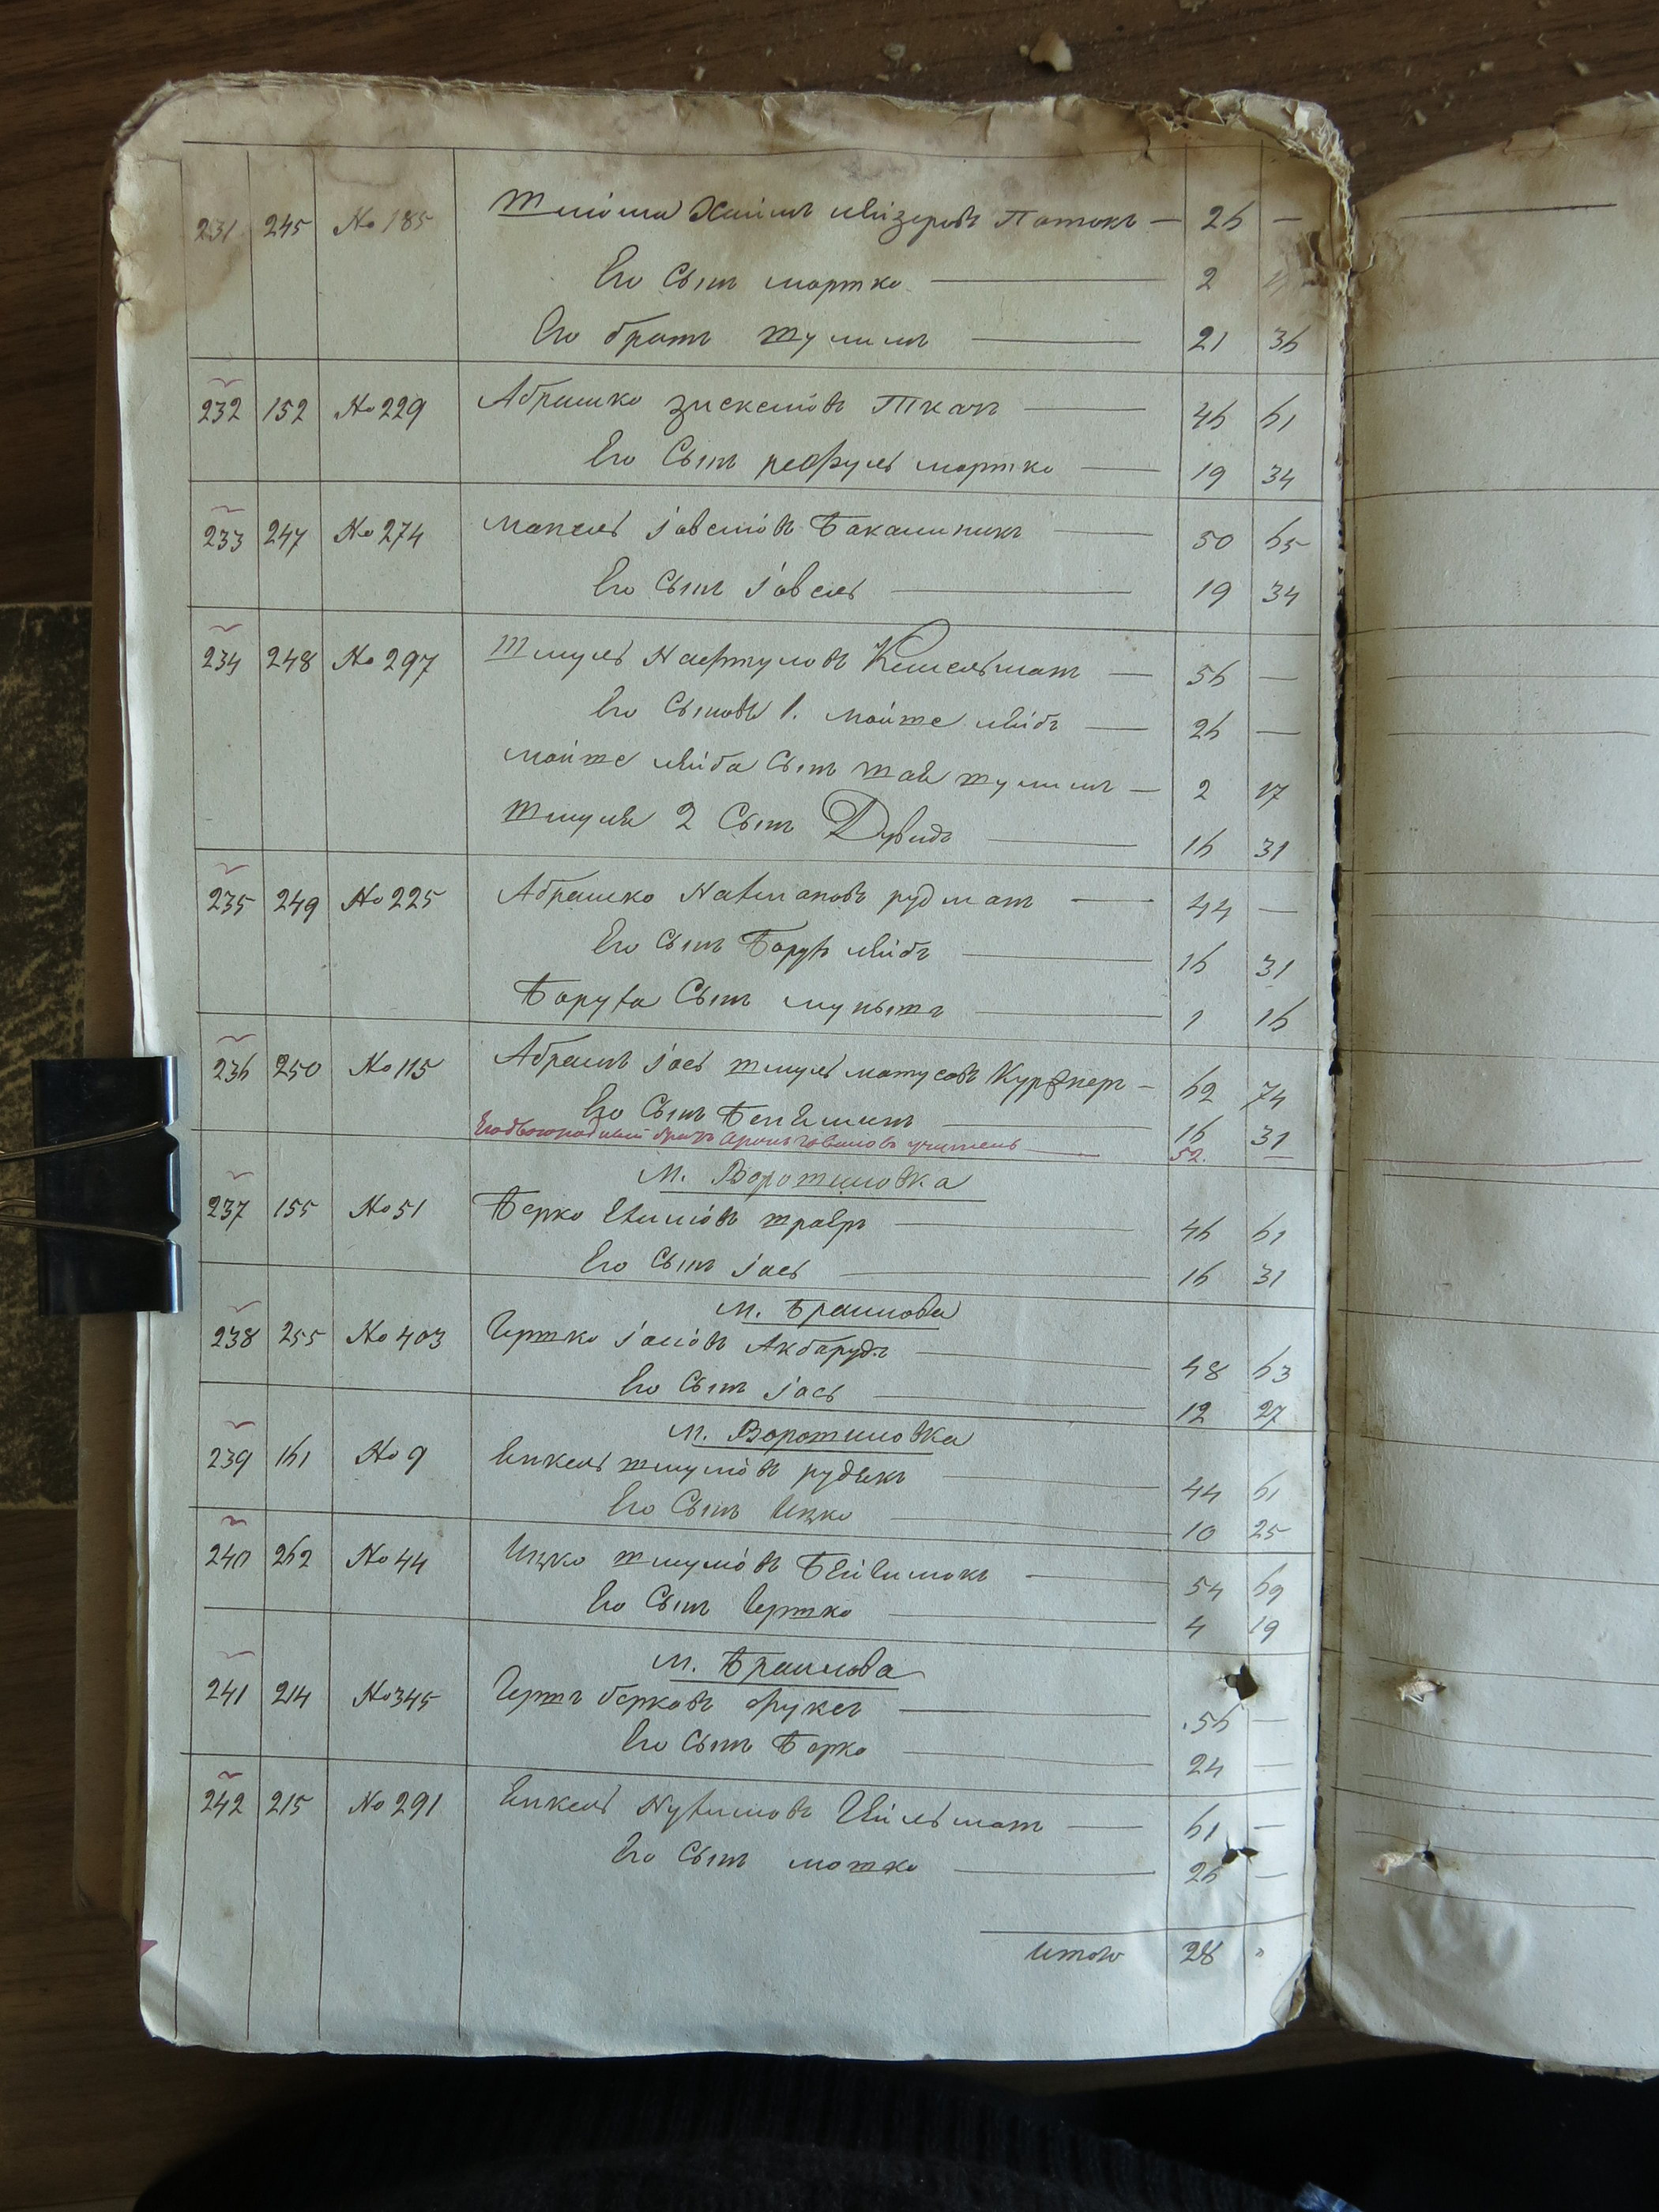 231 245 № 185 Шліома Хаимъ Лейзеровъ Потокъ — 26 —
Его Сынъ Мортко — 2
Его братъ Шулимъ — 21 36
232 152 № 229 Абрашко Зиселіовъ Ткачъ — 46 61
Его Сынъ Рефуль Мортко — 19 34
233 247 № 274 Іовеліовъ Бакалиникъ — 50 65
Его Сынъ Іовель — 19 34
234 248 № 297 Шмуль Нафтуловъ Кишельманъ — 56 —
Его Сыновья 1. Мойше Лейбъ — 26 —
Мойше Лейба Сынъ Шая Шулимъ — 2 17
Шмуля 2 Сынъ Дувидъ — 16 31
235 249 № 225 Абрашко Нахмановъ Рудманъ — 44 —
Его Сынъ Борухъ Лейбъ — 16 31
Боруха Сынъ — 1 16
236 250 № 115 Абрамъ Іось Шмуль Матусовъ — 62 74
Его Сынъ Беніаминъ — 16 31
Его двоюродный братъ Аронъ Іовеловъ Учитель — 52. —
М. Ворошиловка
237 155 № 51 Берко — 46 61
Его Сынъ Іось — 16 31
М. Браилова
238 255 № 403 Гершко Іосіовъ Акбарудъ — 48 63
Его Сынъ Іось — 12 27
М. Ворошиловка
239 161 № 9 Янкель Шмуліовъ Рудыкъ — 44 61
Его Сынъ Ицко — 10 25
240 262 № 44 Ицко Шмуліовъ — 54 69
Его Сынъ Гершко — 4 19
М. Браилова
241 214 № 345 Гершъ Берковъ Фуксъ — 56 —
Его Сынъ Берко — 24 —
242 215 № 291 Янкель Нухимовъ — 61 —
Его Сынъ Мошко — 26 —
Итого 28 "